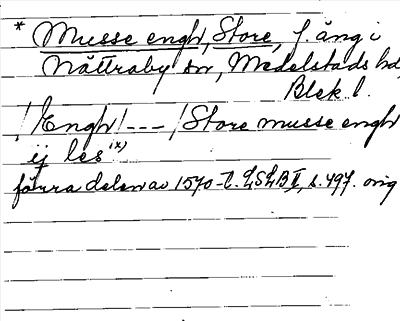 * Musse engh, Store, f. äng i
Nättraby sn, Medelstads hd,
Blek l.
/Engh/ --- /Store musse engh
ej les x)
förra delen av 1570-t. LSLB II, s. 497. orig